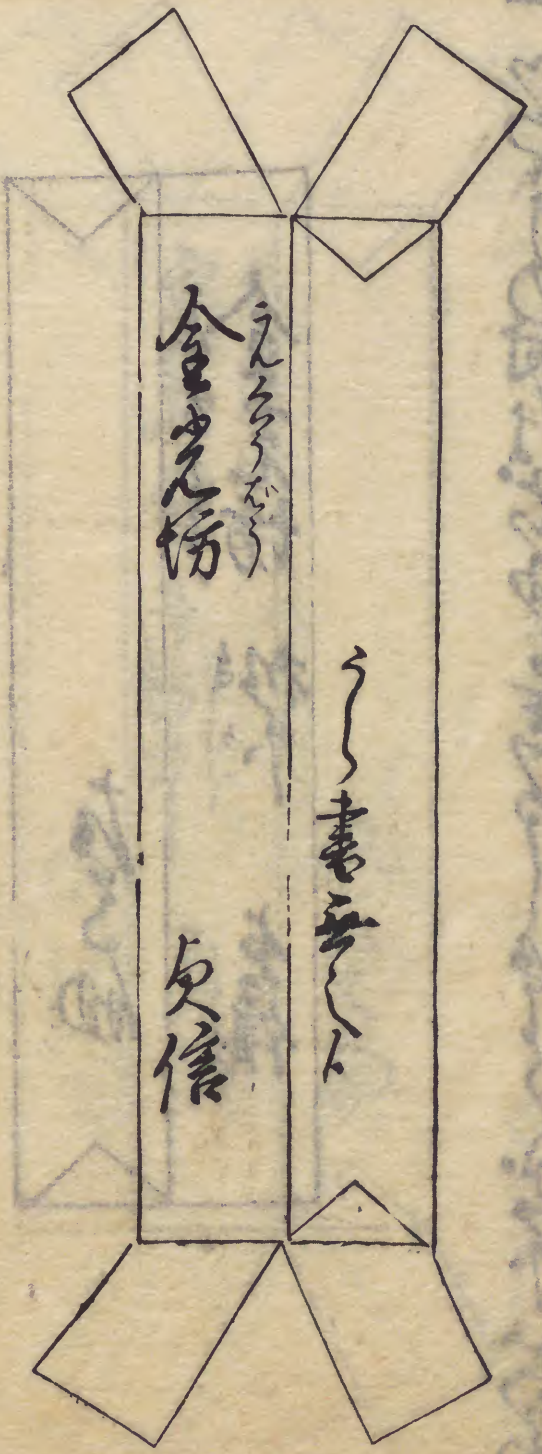 うら書無之候
こんくわうばう
金光坊　貞信